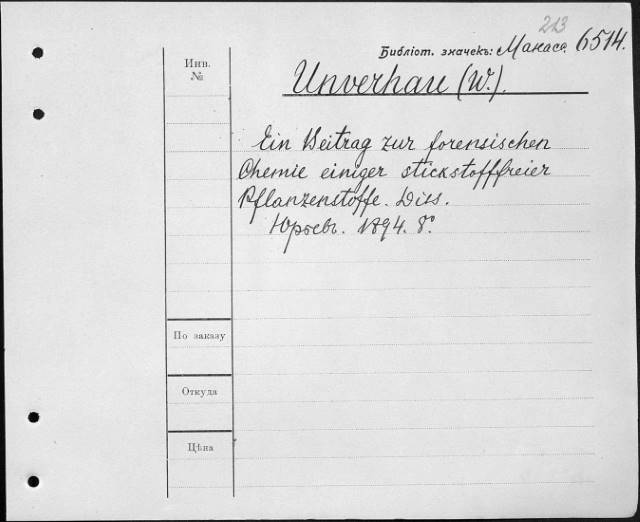 213
Библіот. значекъ: Макасс. 6514.
Инв. №
Unverhau (W.).
Ein Beitrag zur forensischen
Chemie einiger stickstofffreier
Pflanzenstoffe. Diss.
Юрьевъ. 1894. 8°.
По заказу
Откуда
Цѣна